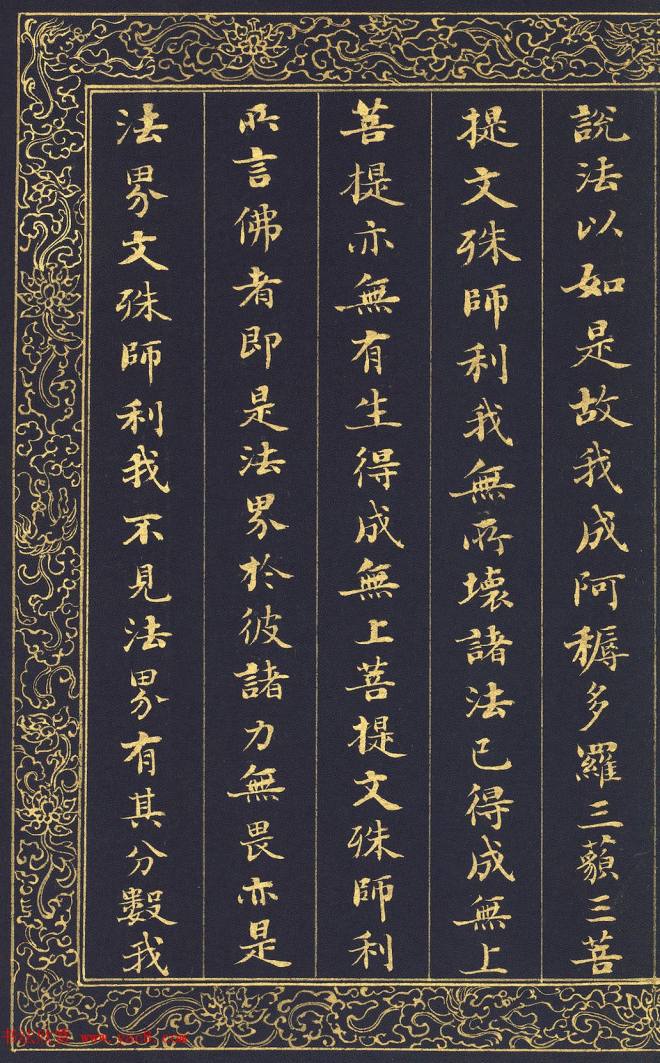 說法以如是故我成阿耨多羅三藐三菩
提文殊師利我無所壞諸法已得成無上
菩提亦無有生得成無上菩提文殊師利
所言佛者即是法界於彼諸力無畏亦是
法界文殊師利我不見法界有其分數我